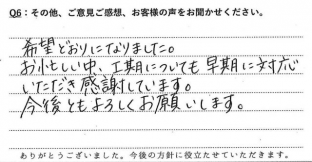 Q6：その他、ご意見ご感想、お客様の声をお聞かせください。
希望どおりになりました。
お忙しい中、工期についても早期に対応
いただき感謝しています。
今後ともよろしくお願いします。
ありがとうございました。今後の方針に役立たせていただきます。